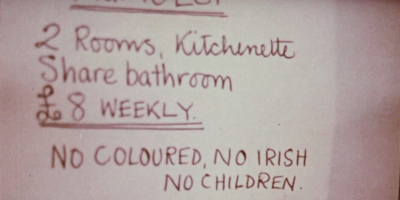 2 Rooms, Kitchenette
Share bathroom
£8 WEEKLY.
NO COLOURED, NO IRISH
NO CHILDREN.